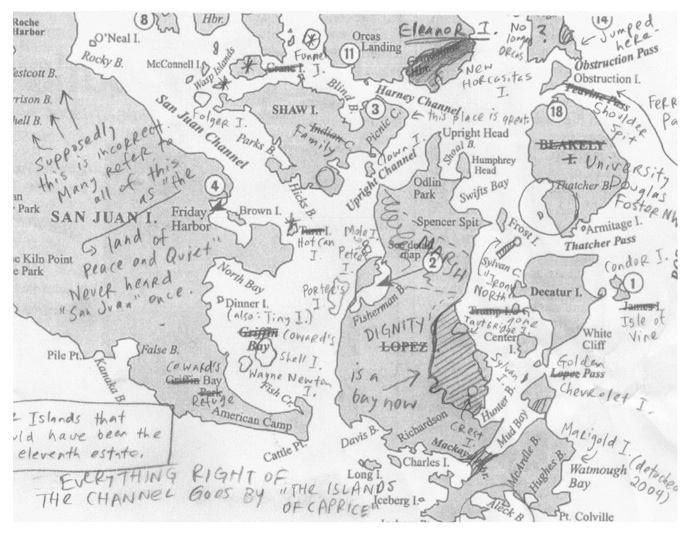 Roche
Harbor
8
Hbr.
O'Neal I.
Rocky B.
McConnell I.
Wasp Islands
Crane I.
J.
Funnel
11
Orcas
Landing
Eleanor I.
NEW
HORCASITAS
I.
No
longer
Orcas
?
14
Jumped
here.
Obstruction Pass
Obstruction I.
Peavine Pass
Shoulder
Spit
Westcott B.
Garrison B.
Mitchell B.
Supposedly
this is incorrect.
Many refer to
all of this
as "the
land of
Peace and Quiet"
Never heard
"San Juan" once.
San Juan Channel
Folger I.
Parks B.
SHAW I.
Indian C.
Family
Blind B.
Harney Channel
3
Picnic C.
this place is great.
Clown I.
Upright Channel
Upright Head
Shoal B.
Humphrey
Head
Swifts Bay
Odlin
Park
Spencer Spit
18
BLAKELY
I.
University
Thatcher B.
Douglas
Foster
D
Armitage I.
Thatcher Pass
Frost I.
4
SAN JUAN I.
Friday
Harbor
Brown I.
Hicks B.
Turn I.
Hot Can
I.
Mole I.
Pete
I.
Porter's
I
See detail
map
2
MARSH
Fisherman B.
Sylvan C.
IRON
NORTH
Trump I.
gone
Center
I.
Decatur I.
Condor I.
1
James I.
Isle of
Vine
White
Cliff
North Bay
Dinner I.
(also: Jing I.)
Griffin
Bay
Coward's
Shell I.
Wayne Newton
I.
Fish Cr.
Pile Pt.
Kanaka B.
False B.
Coward's
Griffin Bay
Park
Refuge
American Camp
Cattle Pt.
DIGNITY
LOPEZ
is a
bay now
Davis B.
Richardson
Hunter B.
Mud Bay
Golden
Lopez Pass
Chevrolet I.
Crest
I.
Mackaye
McArdle B.
Hughes B.
Marigold I.
(detached
2004)
Watmough
Bay
Aleck B.
Pt. Colville
Long I.
Charles I.
Iceberg I.
Islands that
could have been the
eleventh estate.
EVERYTHING RIGHT OF
THE CHANNEL GOES BY "THE ISLANDS
OF CAPRICE"